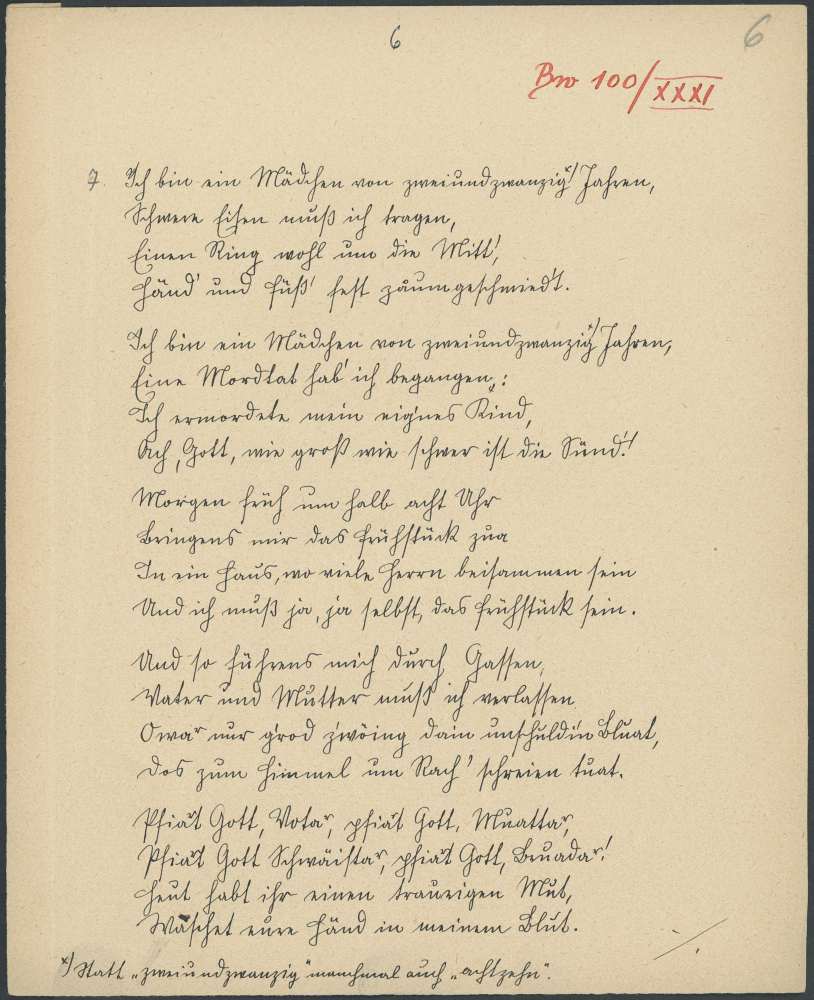 6
6
Bw 100/XXXI
7. Ich bin ein Mädchen von zweiundzwanzig*) Jahren,
Schwere Eisen muß ich tragen,
Einen Ring wohl um die Mitt',
Händ' und Füß' fest zåumgeschmied't.
Ich bin ein Mädchen von zweiundzwanzig*) Jahren,
Eine Mordtat hab' ich begangen:
Ich ermordete mein eig'nes Kind,
Ach, Gott, wie groß wie schwer ist die Sünd'!
Morgen früh um halb acht Uhr
Bringens mir das Frühstück zua
In ein Haus, wo viele Herrn beisammen sein
Und ich muß ja, ja selbst, das Frühstück sein.
Und so führens mich durch Gassen,
Vater und Mutter muß ich verlassen
Owar nur grod z'wöing dain unschuldin Bluat,
Dos zum Himmel um Rach' schreien tuat.
Pfiat Gott, Votar, pfiat Gott, Muattar,
Pfiat Gott Schwäistar, pfiat Gott, Bruadar!
Heut habt ihr einen traurigen Mut,
Waschet eure Händ in meinem Blut.
*) Statt „zweiundzwanzig" manchmal auch „achtzehn".